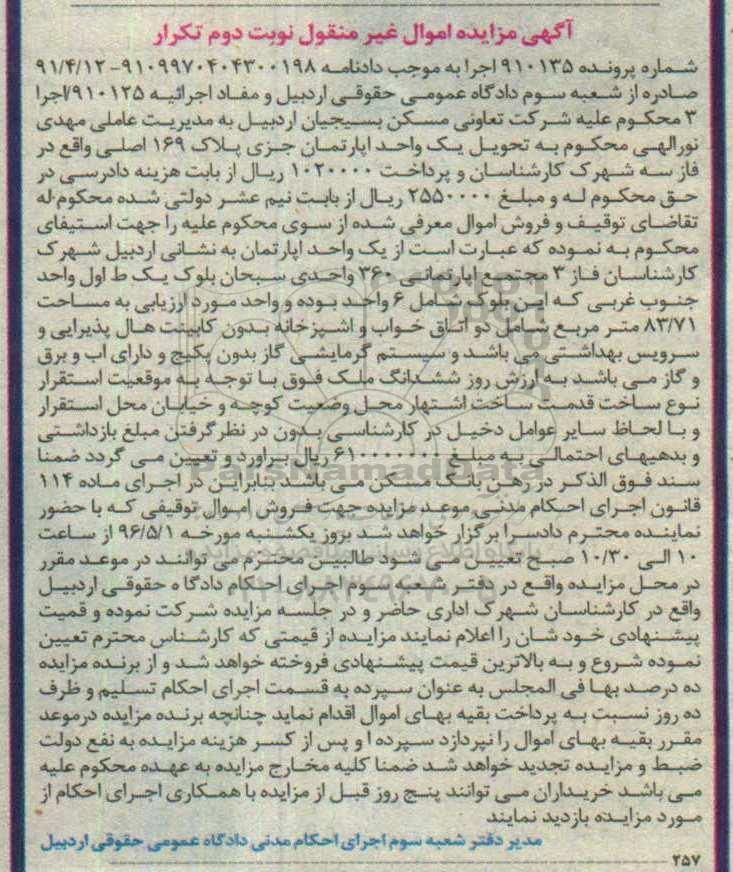 آگهی مزایده اموال غیر منقول نوبت دوم تکرار
شماره پرونده ۹۱۰۱۳۵ اجرا به موجب دادنامه ۹۱۰۹۹۷۰۴۰۴۳۰۰۱۹۸-۹۱/۴/۱۲
صادره از شعبه سوم دادگاه عمومی حقوقی اردبیل و مفاد اجرائیه ۹۱۰۱۲۵/اجرا
۳ محکوم علیه شرکت تعاونی مسکن بسیجیان اردبیل به مدیریت عاملی مهدی
نورالهی محکوم به تحویل یک واحد اپارتمان جزی پلاک ۱۶۹ اصلی واقع در
فاز سه شهرک کارشناسان و پرداخت ۱۰۲۰۰۰۰ ریال از بابت هزینه دادرسی در
حق محکوم له و مبلغ ۲۵۵۰۰۰۰۰ ریال از بابت نیم عشر دولتی شده محکوم له
تقاضای توقیف و فروش اموال معرفی شده از سوی محکوم علیه را جهت استیفای
محکوم به نموده که عبارت است از یک واحد اپارتمان به نشانی اردبیل شهرک
کارشناسان فاز ۳ مجتمع اپارتمانی ۳۶۰ واحدی سبحان بلوک یک ط اول واحد
جنوب غربی که این بلوک شامل ۶ واحد بوده و واحد مورد ارزیابی به مساحت
۸۳/۷۱ متر مربع شامل دو اتاق خواب و اشپزخانه بدون کابینت هال پذیرایی و
سرویس بهداشتی می باشد و سیستم گرمایشی گاز بدون پکیج و دارای اب و برق
و گاز می باشد به ارزش روز ششدانگ ملک فوق با توجه به موقعیت استقرار
نوع ساخت قدمت ساخت اشتهار محل وضعیت کوچه و خیابان محل استقرار
و با لحاظ سایر عوامل دخیل در کارشناسی بدون در نظر گرفتن مبلغ بازداشتی
و بدهیهای احتمالی به مبلغ ۶۱۰۰۰۰۰۰۰ ریال براورد و تعیین می گردد ضمنا
سند فوق الذکر در رهن بانک مسکن می باشد بنابراین در اجرای ماده ۱۱۴
قانون اجرای احکام مدنی موعد مزایده جهت فروش اموال توقیفی که با حضور
نماینده محترم دادسرا برگزار خواهد شد بروز یکشنبه مورخه ۹۶/۵/۱ از ساعت
۱۰ الی ۱۰/۳۰ صبح تعیین می شود طالبین محترم می توانند در موعد مقرر
در محل مزایده واقع در دفتر شعبه سوم اجرای احکام دادگاه حقوقی اردبیل
واقع در کارشناسان شهرک اداری حاضر و در جلسه مزایده شرکت نموده و قمیت
پیشنهادی خود شان را اعلام نمایند مزایده از قیمتی که کارشناس محترم تعیین
نموده شروع و به بالاترین قیمت پیشنهادی فروخته خواهد شد و از برنده مزایده
ده درصد بها فی المجلس به عنوان سپرده به قسمت اجرای احکام تسلیم و ظرف
ده روز نسبت به پرداخت بقیه بهای اموال اقدام نماید چنانچه برنده مزایده درموعد
مقرر بقیه بهای اموال را نپردازد سپرده او پس از کسر هزینه مزایده به نفع دولت
ضبط و مزایده تجدید خواهد شد ضمنا کلیه مخارج مزایده به عهده محکوم علیه
می باشد خریداران می توانند پنج روز قبل از مزایده با همکاری اجرای احکام از
مورد مزایده بازدید نمایند
مدیر دفتر شعبه سوم اجرای احکام مدنی دادگاه عمومی حقوقی اردبیل
۲۵۷
ParsNamadData